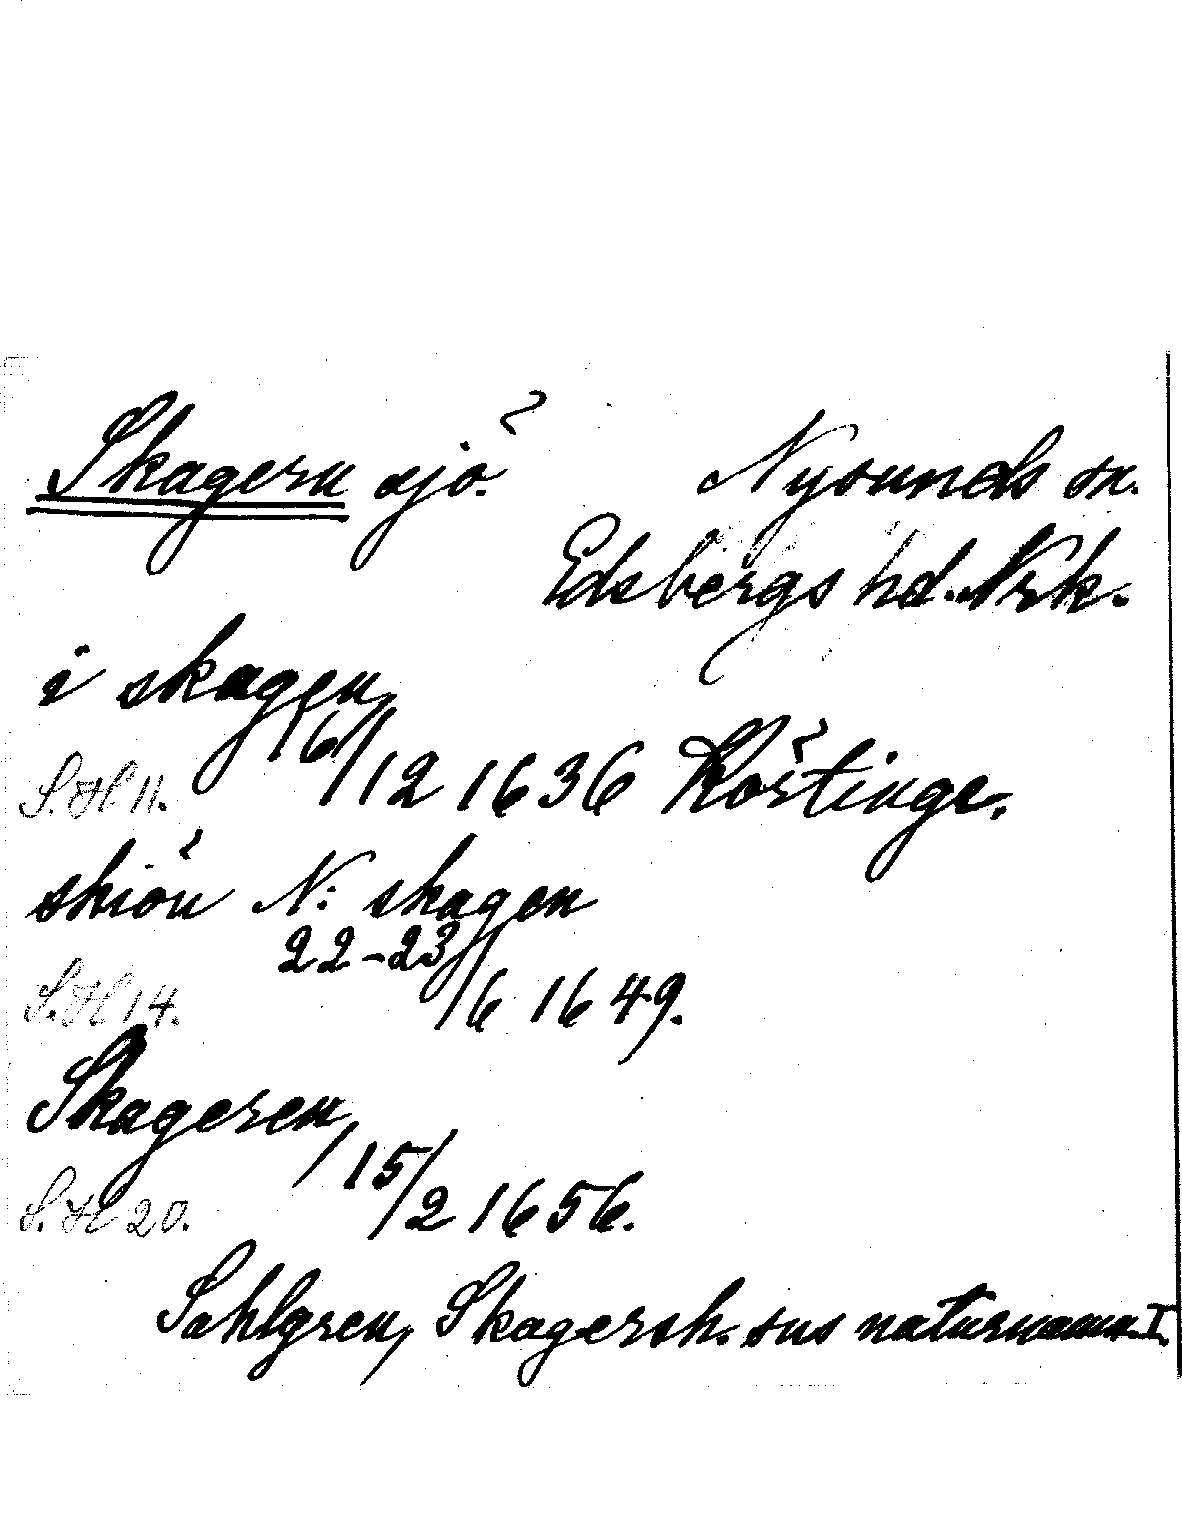 Skagern sjö. Nysunds sn.
Edsbergs hd. Nrk.
i skagen
16/12 1636 Körtinge.
S.H 11.
skiön N: skagen
22-23/6 1649.
S.H 14.
Skageren
15/2 1656.
S.H 20.
Sahlgren, Skagersh. sns naturnamn I.